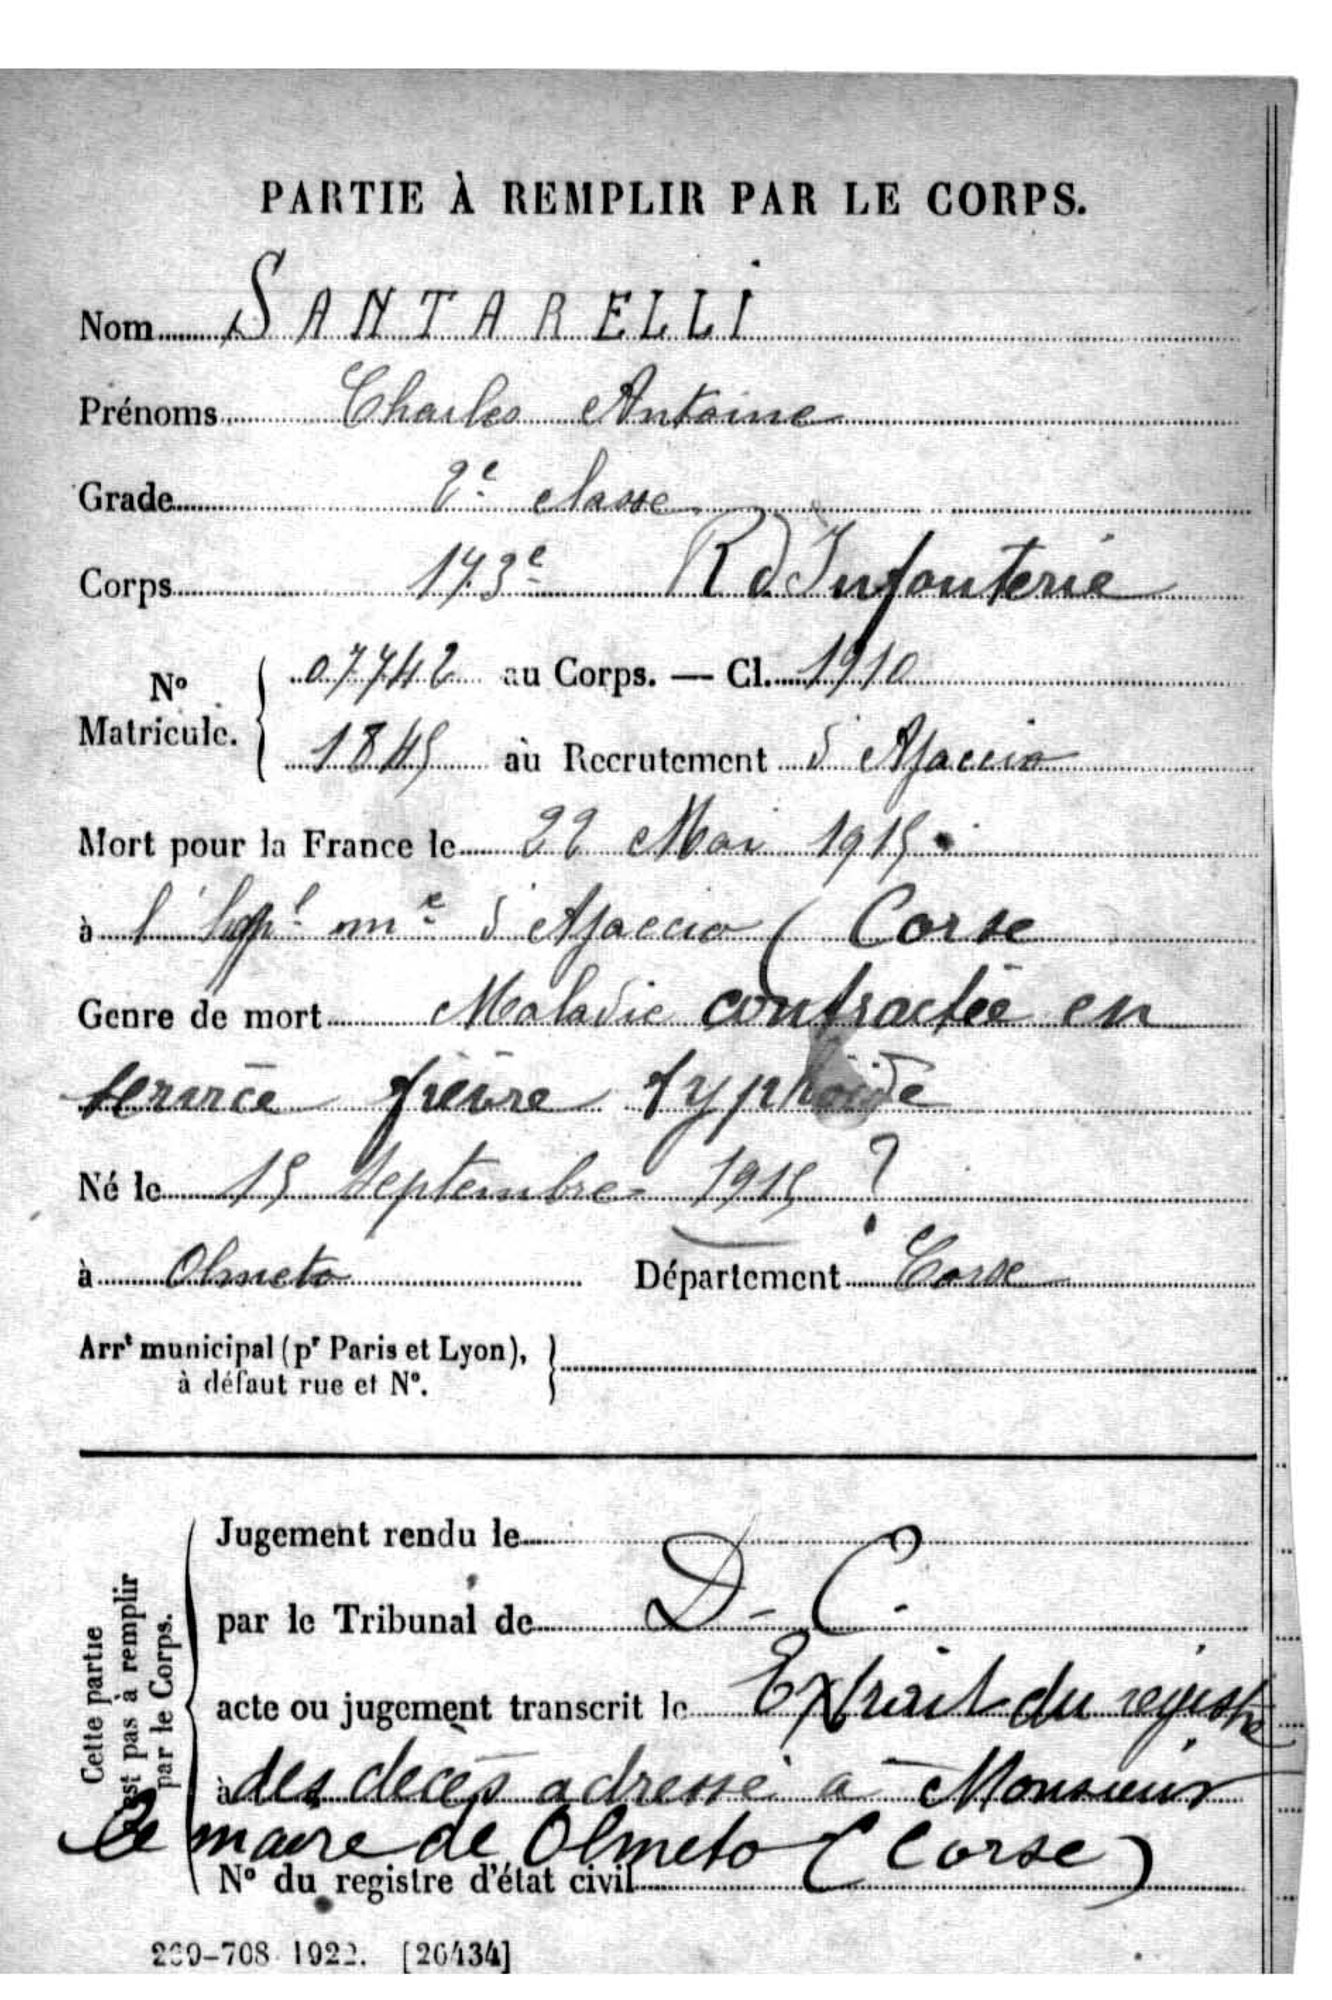 PARTIE À REMPLIR PAR LE CORPS.
Nom SANTARELLI
Prénoms Charles Antoine
Grade 2e classe
Corps 173e R d'Infanterie
N° Matricule. 07742 au Corps. — Cl. 1910
1845 au Recrutement d'Ajaccio
Mort pour la France le 22 Mai 1915
à l'hopl me d'Ajaccio (Corse
Genre de mort Maladie contractée en
service fièvre typhoïde
Né le 15 Septembre 1915 ?
à Olmeto Département Corse
Arrt municipal (pr Paris et Lyon),
à défaut rue et N°.
Cette partie
est pas à remplir
par le Corps.
Jugement rendu le
par le Tribunal de D - C -
acte ou jugement transcrit le Extrait du registre
à des décès adressé à Monsieur
Le maire de Olmeto (Corse)
N° du registre d'état civil
-708 1922. [26434]